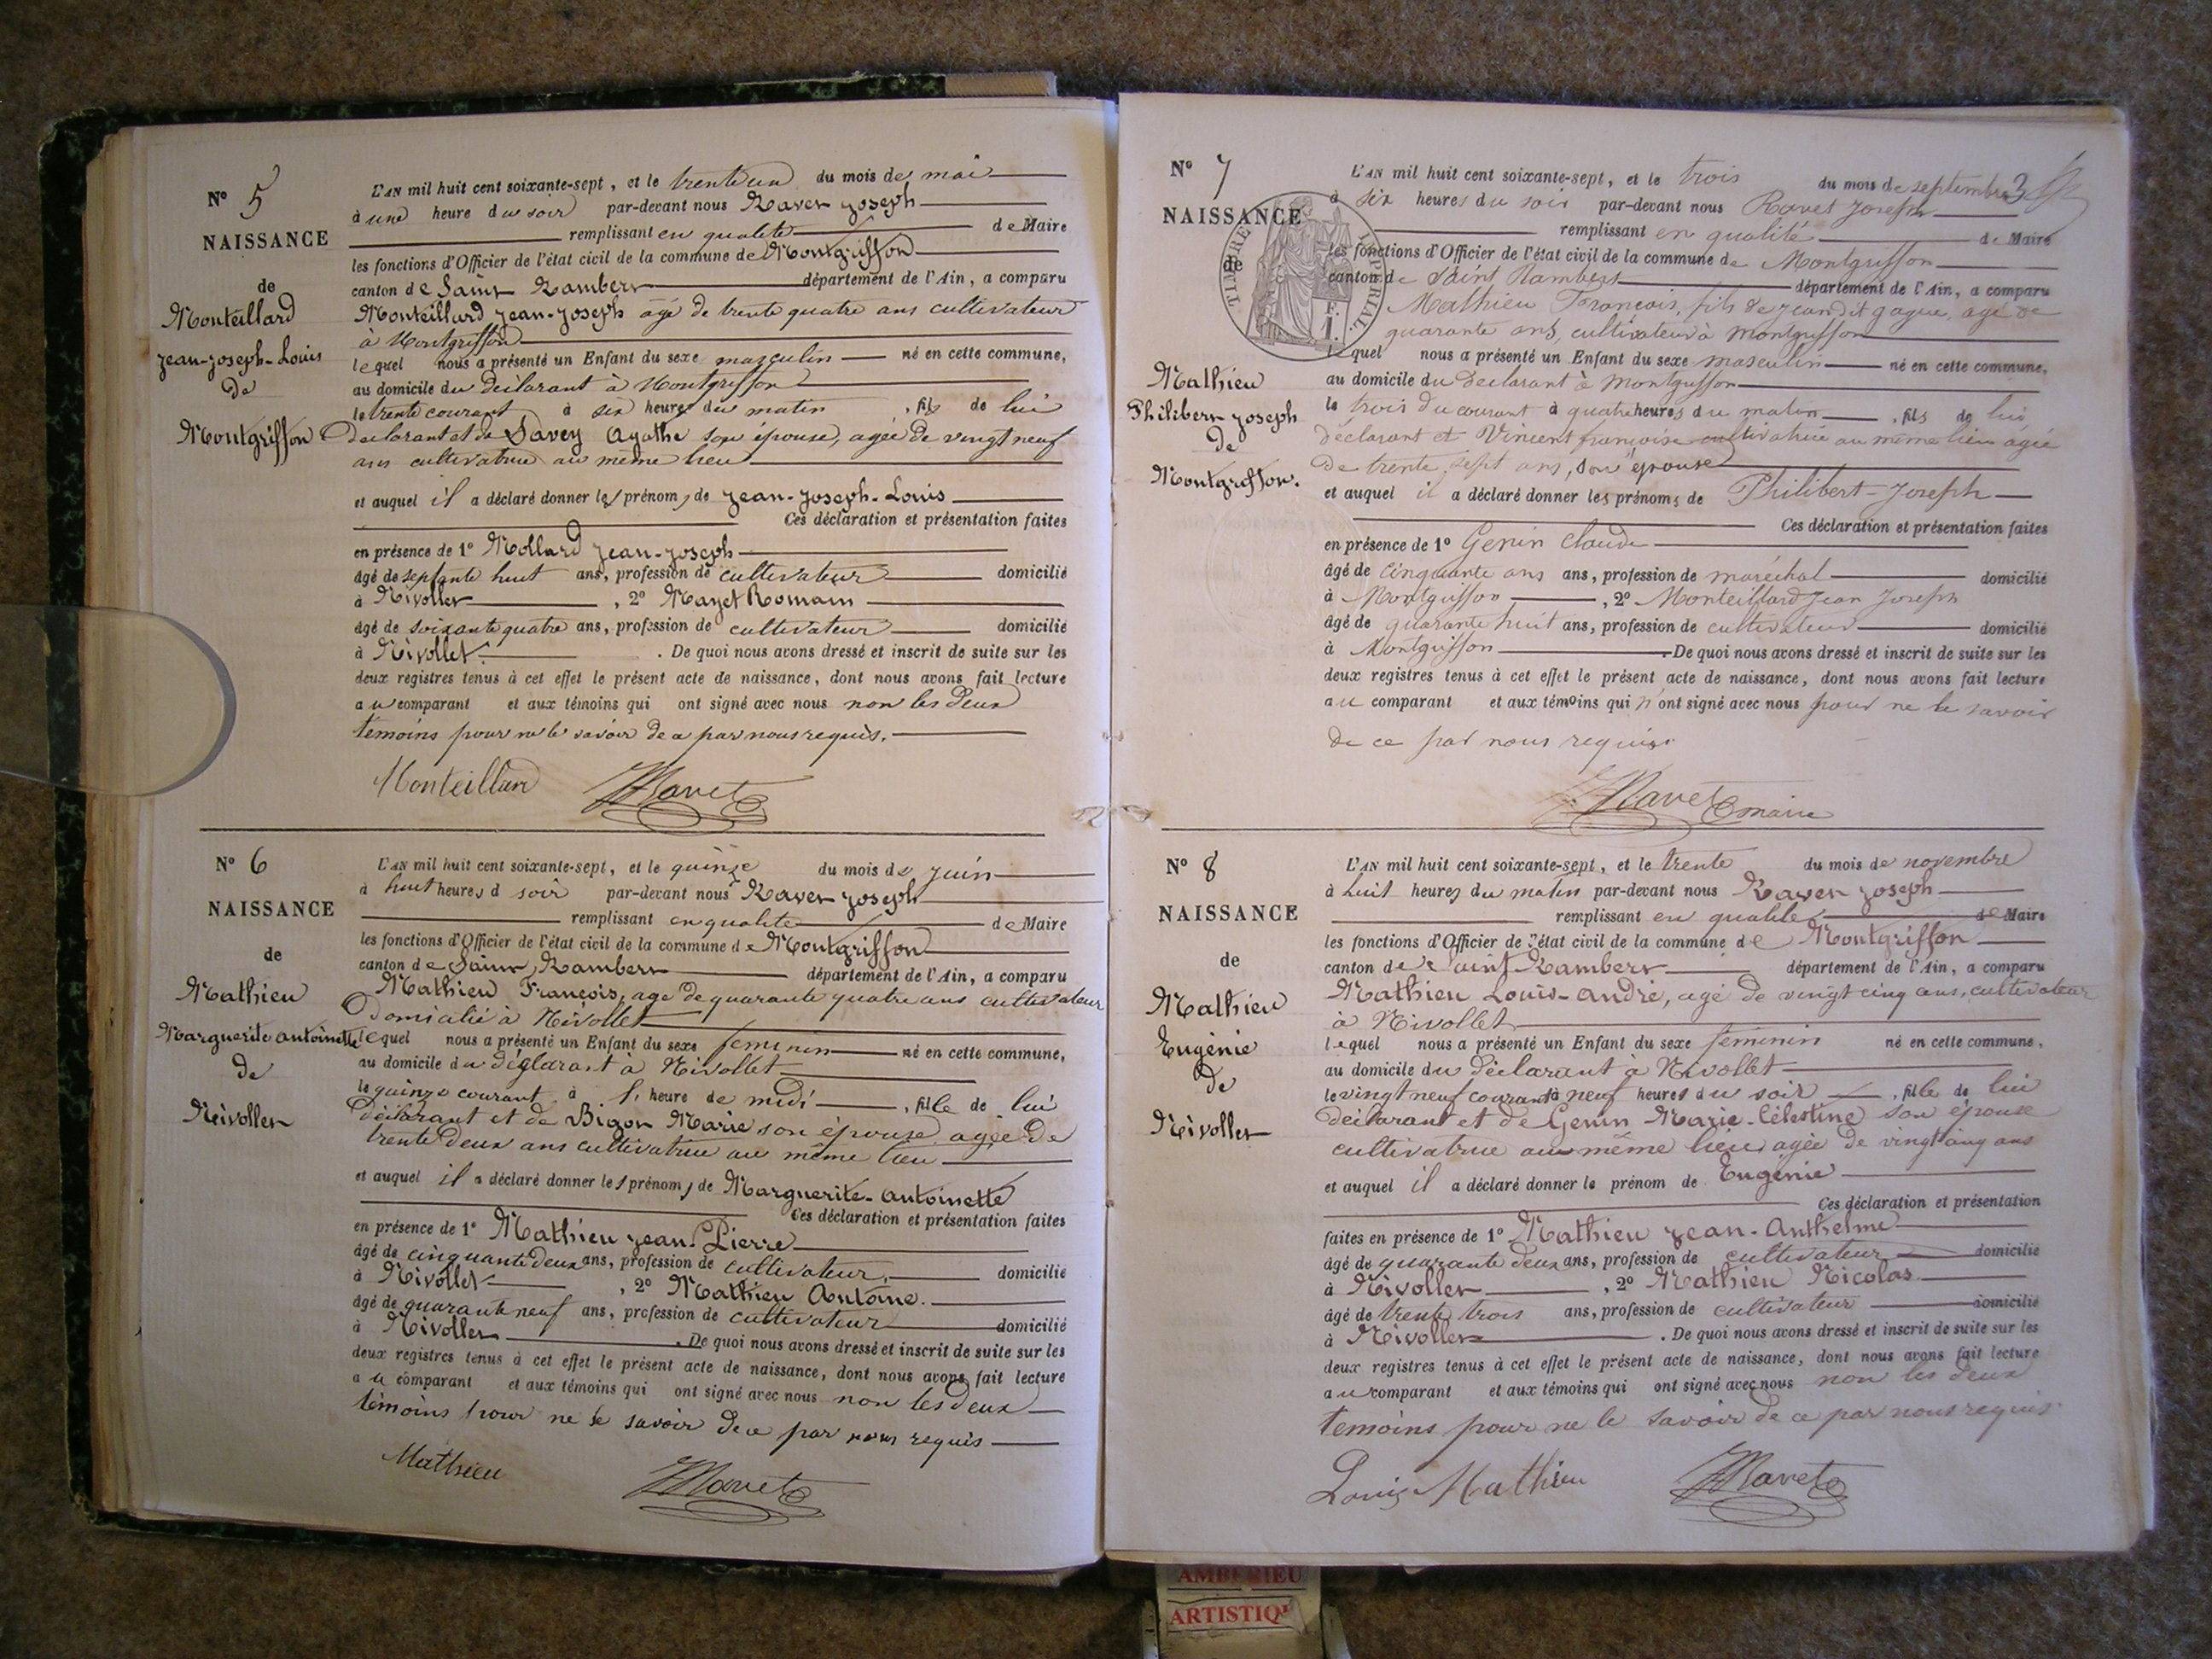 N° 5
NAISSANCE
de
Monteillard
Jean-Joseph-Louis
de
Montgriffon
L'AN mil huit cent soixante-sept, et le trente un du mois de mai
à une heure du soir par-devant nous Ravet Joseph
remplissant en qualité de Maire
les fonctions d'Officier de l'état civil de la commune de Montgriffon
canton de Saint Rambert département de l'Ain, a comparu
Monteillard Jean-Joseph âgé de trente quatre ans cultivateur
à Montgriffon
lequel nous a présenté un Enfant du sexe masculin né en cette commune,
au domicile du déclarant à Montgriffon
le trente courant à six heures du matin, fils de lui
déclarant et de Savey Agathe son épouse, agée de vingt neuf
ans cultivatrice au même lieu
et auquel il a déclaré donner les prénoms de Jean-Joseph-Louis
Ces déclaration et présentation faites
en présence de 1° Mollard Jean-Joseph
âgé de septante huit ans, profession de cultivateur domicilié
à Nivollet, 2° Mayet Romain
âgé de soixante quatre ans, profession de cultivateur domicilié
à Nivollet. De quoi nous avons dressé et inscrit de suite sur les
deux registres tenus à cet effet le présent acte de naissance, dont nous avons fait lecture
au comparant et aux témoins qui ont signé avec nous non les deux
témoins pour ne le savoir de ce par nous requis.
Monteillard Ravet
N° 6
NAISSANCE
de
Mathieu
Marguerite Antoinette
de
Nivollet
L'AN mil huit cent soixante-sept, et le quinze du mois de juin
à huit heures d soir par-devant nous Ravet Joseph
remplissant en qualité de Maire
les fonctions d'Officier de l'état civil de la commune de Montgriffon
canton de Saint Rambert département de l'Ain, a comparu
Mathieu François, age de quarante quatre ans cultivateur
domicilié à Nivollet
lequel nous a présenté un Enfant du sexe feminin né en cette commune,
au domicile du déclarant à Nivollet
le quinze courant à l' heure de midi, fille de lui
déclarant et de Bigot Marie son épouse agée de
trente deux ans cultivatrice au même lieu
et auquel il a déclaré donner les prénoms de Marguerite-Antoinette
Ces déclaration et présentation faites
en présence de 1° Mathieu Jean-Pierre
âgé de cinquante deux ans, profession de cultivateur, domicilié
à Nivollet, 2° Mathieu Antoine.
âgé de quarante neuf ans, profession de cultivateur domicilié
à Nivollet. De quoi nous avons dressé et inscrit de suite sur les
deux registres tenus à cet effet le présent acte de naissance, dont nous avons fait lecture
au comparant et aux témoins qui ont signé avec nous non les deux
témoins pour ne le savoir de ce par nous requis
Mathieu Ravet
N° 7
NAISSANCE
de
TIMBRE IMPÉRIAL
1 F.
Mathieu
Philibert Joseph
de
Montgriffon.
L'AN mil huit cent soixante-sept, et le trois du mois de septembre 3
à six heures du soir par-devant nous Ravet Joseph
remplissant en qualité de Maire
les fonctions d'Officier de l'état civil de la commune de Montgriffon
canton de Saint Rambert département de l'Ain, a comparu
Mathieu François, fils de Jean dit gagne, âgé de
quarante ans, cultivateur à Montgriffon
lequel nous a présenté un Enfant du sexe masculin né en cette commune,
au domicile du déclarant à Montgriffon
le trois du courant à quatre heures du matin, fils de lui
déclarant et Vincent françoise cultivatrice au même lieu agée
de trente sept ans, son épouse
et auquel il a déclaré donner les prénoms de Philibert-Joseph
Ces déclaration et présentation faites
en présence de 1° Genin Claude
âgé de cinquante ans ans, profession de maréchal domicilié
à Montgriffon, 2° Monteillard Jean Joseph
âgé de quarante huit ans, profession de cultivateur domicilié
à Montgriffon. De quoi nous avons dressé et inscrit de suite sur les
deux registres tenus à cet effet le présent acte de naissance, dont nous avons fait lecture
au comparant et aux témoins qui n'ont signé avec nous pour ne le savoir
de ce par nous requis.
Ravet maire
N° 8
NAISSANCE
de
Mathieu
Eugénie
de
Nivollet
L'AN mil huit cent soixante-sept, et le trente du mois de novembre
à huit heures du matin par-devant nous Ravet Joseph
remplissant en qualité de Maire
les fonctions d'Officier de l'état civil de la commune de Montgriffon
canton de Saint Rambert département de l'Ain, a comparu
Mathieu Louis-André, agé de vingt cinq ans, cultivateur
à Nivollet
lequel nous a présenté un Enfant du sexe féminin né en cette commune,
au domicile du déclarant à Nivollet
le vingt neuf courant à neuf heures du soir, fille de lui
déclarant et de Genin Marie-Célestine son épouse
cultivatrice au même lieu, agée de vingt cinq ans
et auquel il a déclaré donner le prénom de Eugénie
Ces déclaration et présentation
faites en présence de 1° Mathieu Jean-Anthelme
âgé de quarante deux ans, profession de cultivateur domicilié
à Nivollet, 2° Mathieu Nicolas
âgé de trente trois ans, profession de cultivateur domicilié
à Nivollet. De quoi nous avons dressé et inscrit de suite sur les
deux registres tenus à cet effet le présent acte de naissance, dont nous avons fait lecture
au comparant et aux témoins qui ont signé avec nous non les deux
témoins pour ne le savoir de ce par nous requis
Louis Mathieu Ravet
AMBERIEU
ARTISTIQ